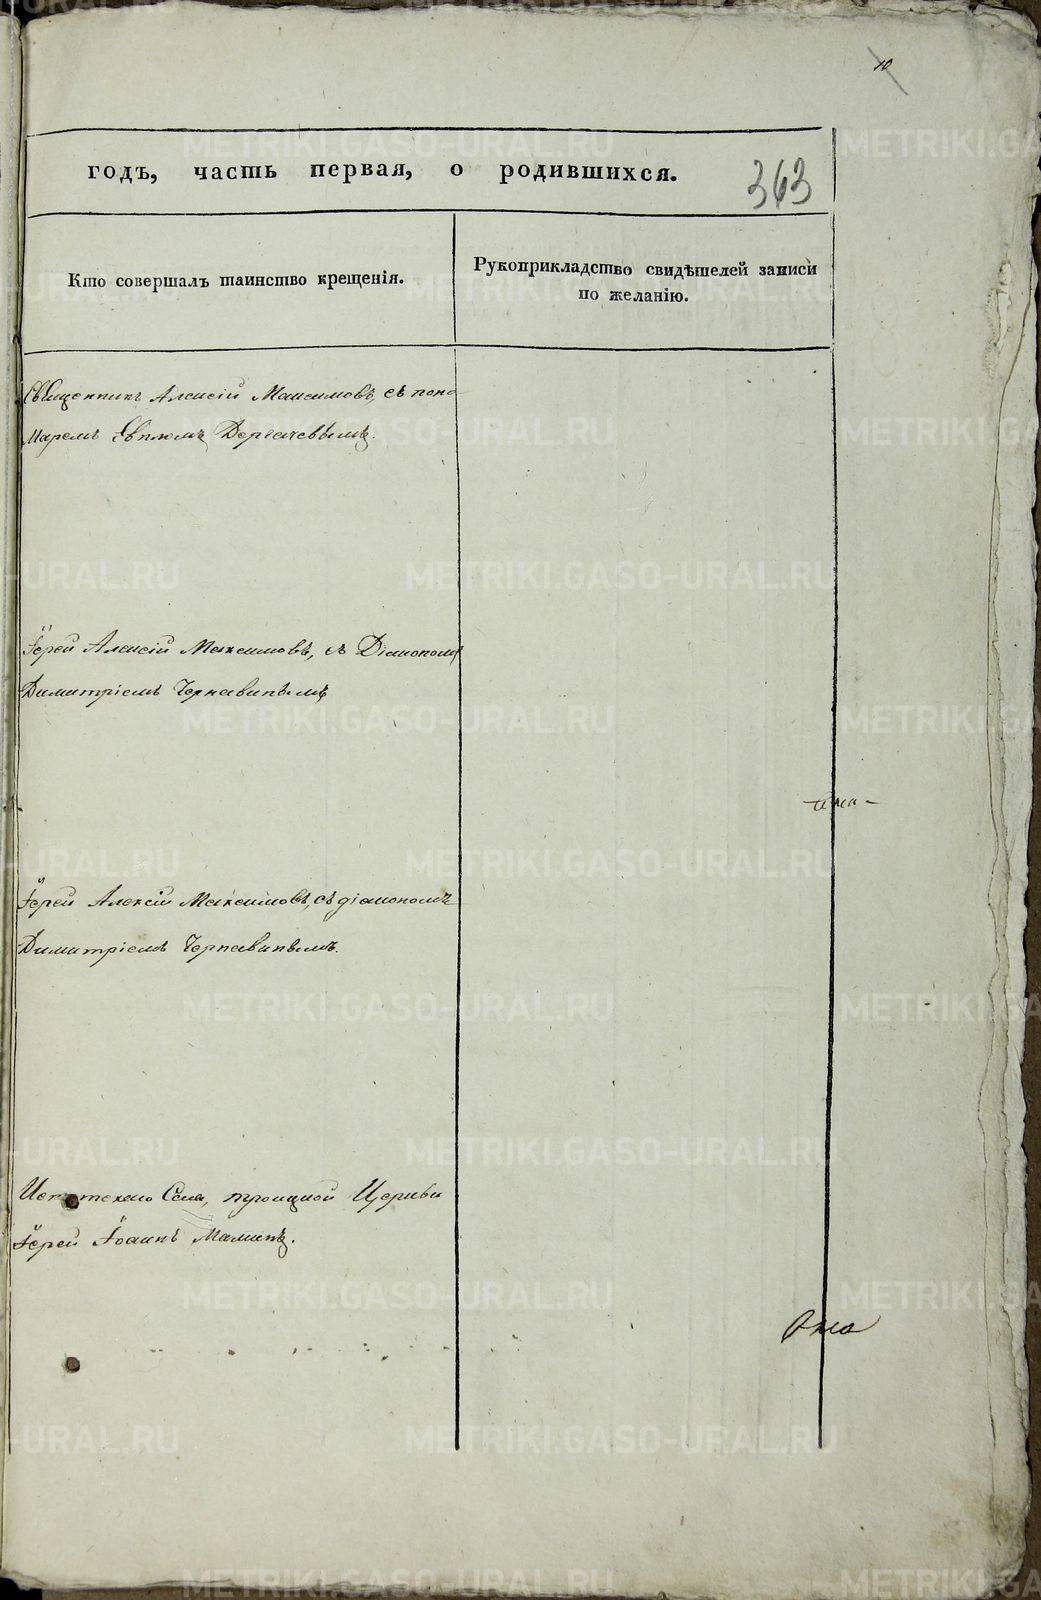 10
годъ, часть первая, о родившихся.
363
Кто совершалъ таинство крещенія.
Рукоприкладство свидѣтелей записи
по желанію.
Священникъ Алексій Максимовъ, съ поно-
маремъ Евпломъ Дергачевымъ.
Іерей Алексій Максимовъ, съ Діакономъ
Димитріемъ Чернавинымъ
Іерей Алексій Максимовъ, съ діакономъ
Димитріемъ Чернавинымъ.
Села, троицкой Церкви
Іерей Іоаннъ Маминъ.
METRIKI.GASO-URAL.RU